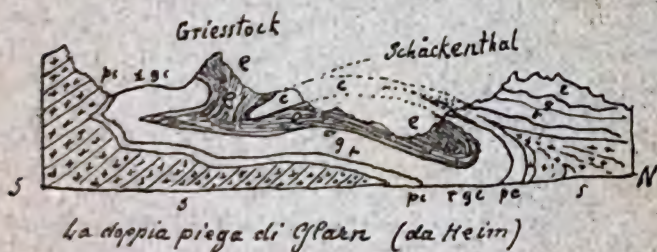 Griesstock
Schäckenthal
pc r gc e
e c c
e e
g r
e
g
r
S s pc r gc pc s N
La doppia piega di Glarn (da Heim)